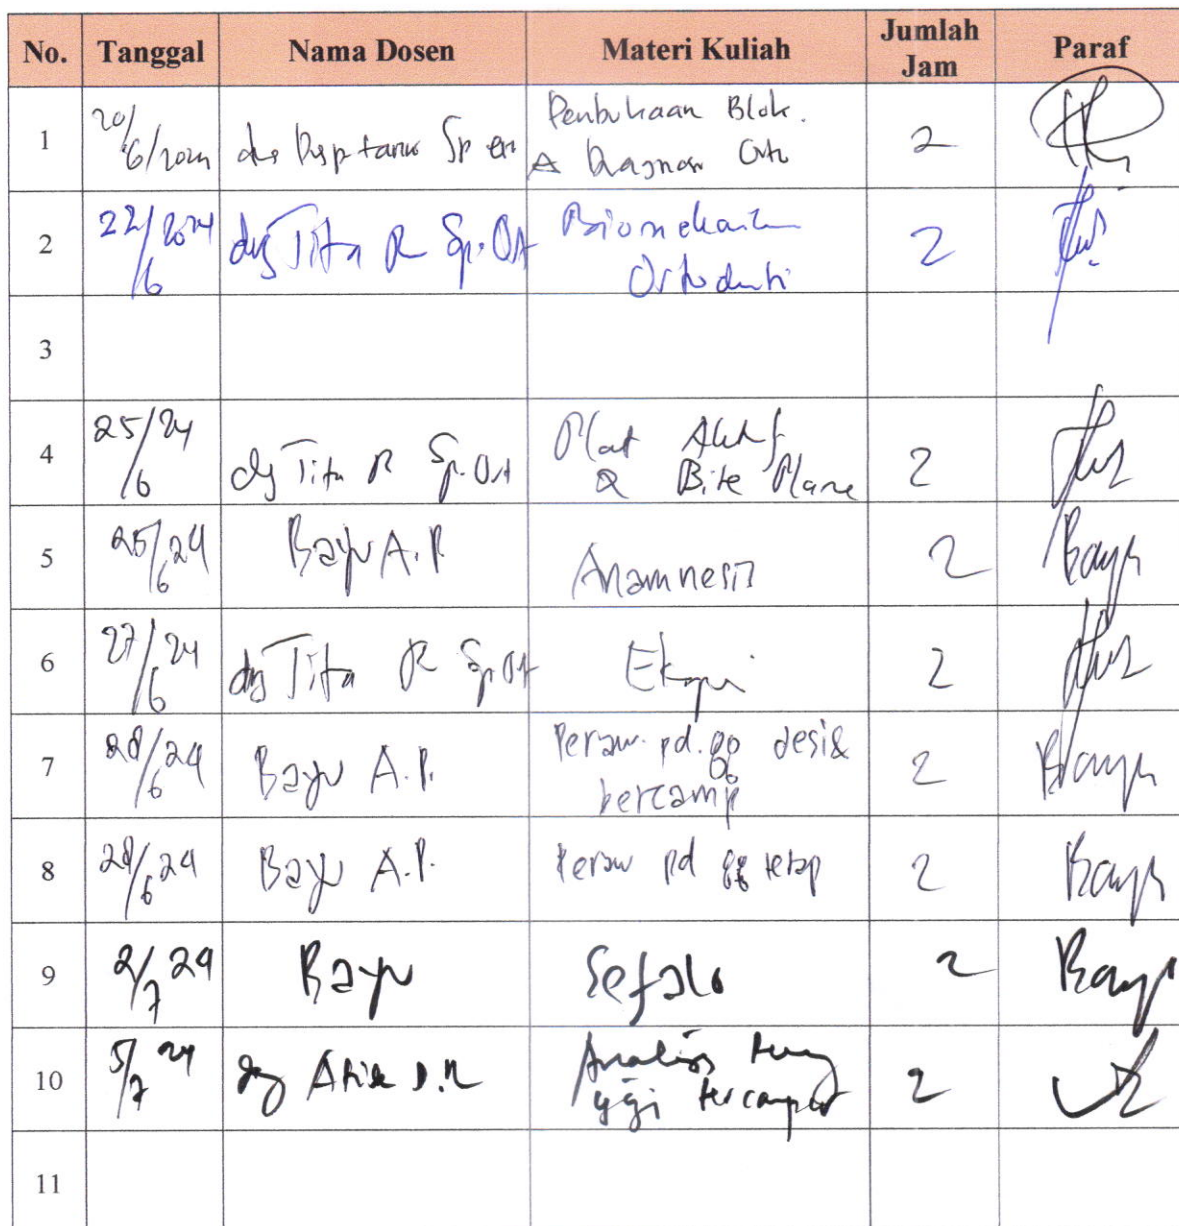 No. Tanggal Nama Dosen Materi Kuliah Jumlah Jam Paraf
1 20/6/2024 Sp Blok. 2
& Diagnosa Orto
2 22/6 2024 drg Tita R Sp.Ort Biomekanik 2
Ortodonti
3
4 25/6 24 drg Tita R Sp.Ort Plat Aktif 2
& Bite Plane
5 25/6 24 Bayu A.P Anamnesis 2 Bayu
6 27/6 24 drg Tita R Sp.Ort 2
7 28/6 24 Bayu A.P. Peraw. pd. gg desi& 2 Bayu
bercamp
8 28/6 24 Bayu A.P. Peraw pd gg tetap 2 Bayu
9 2/7 24 Bayu Sefalo 2 Bayu
10 5/7 24 drg Analisis 2
gigi
11